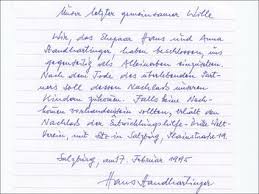 Unser letzter gemeinsamer Wille
Wir, das Ehepaar Hans und Anna
Handhartinger haben beschlossen, uns
gegenseitig als Alleinerben einzusetzen.
Nach dem Tode des überlebenden Part-
ners soll dessen Nachlass unseren
Kindern zukommen. Falls keine Nach-
kommen vorhanden sein sollten, erhält den
Nachlass der Entwicklungshilfe-Dritte Welt-
Verein, mit Sitz in Salzburg, 19.
Salzburg, am 7. Februar 1995
Hans Handhartinger